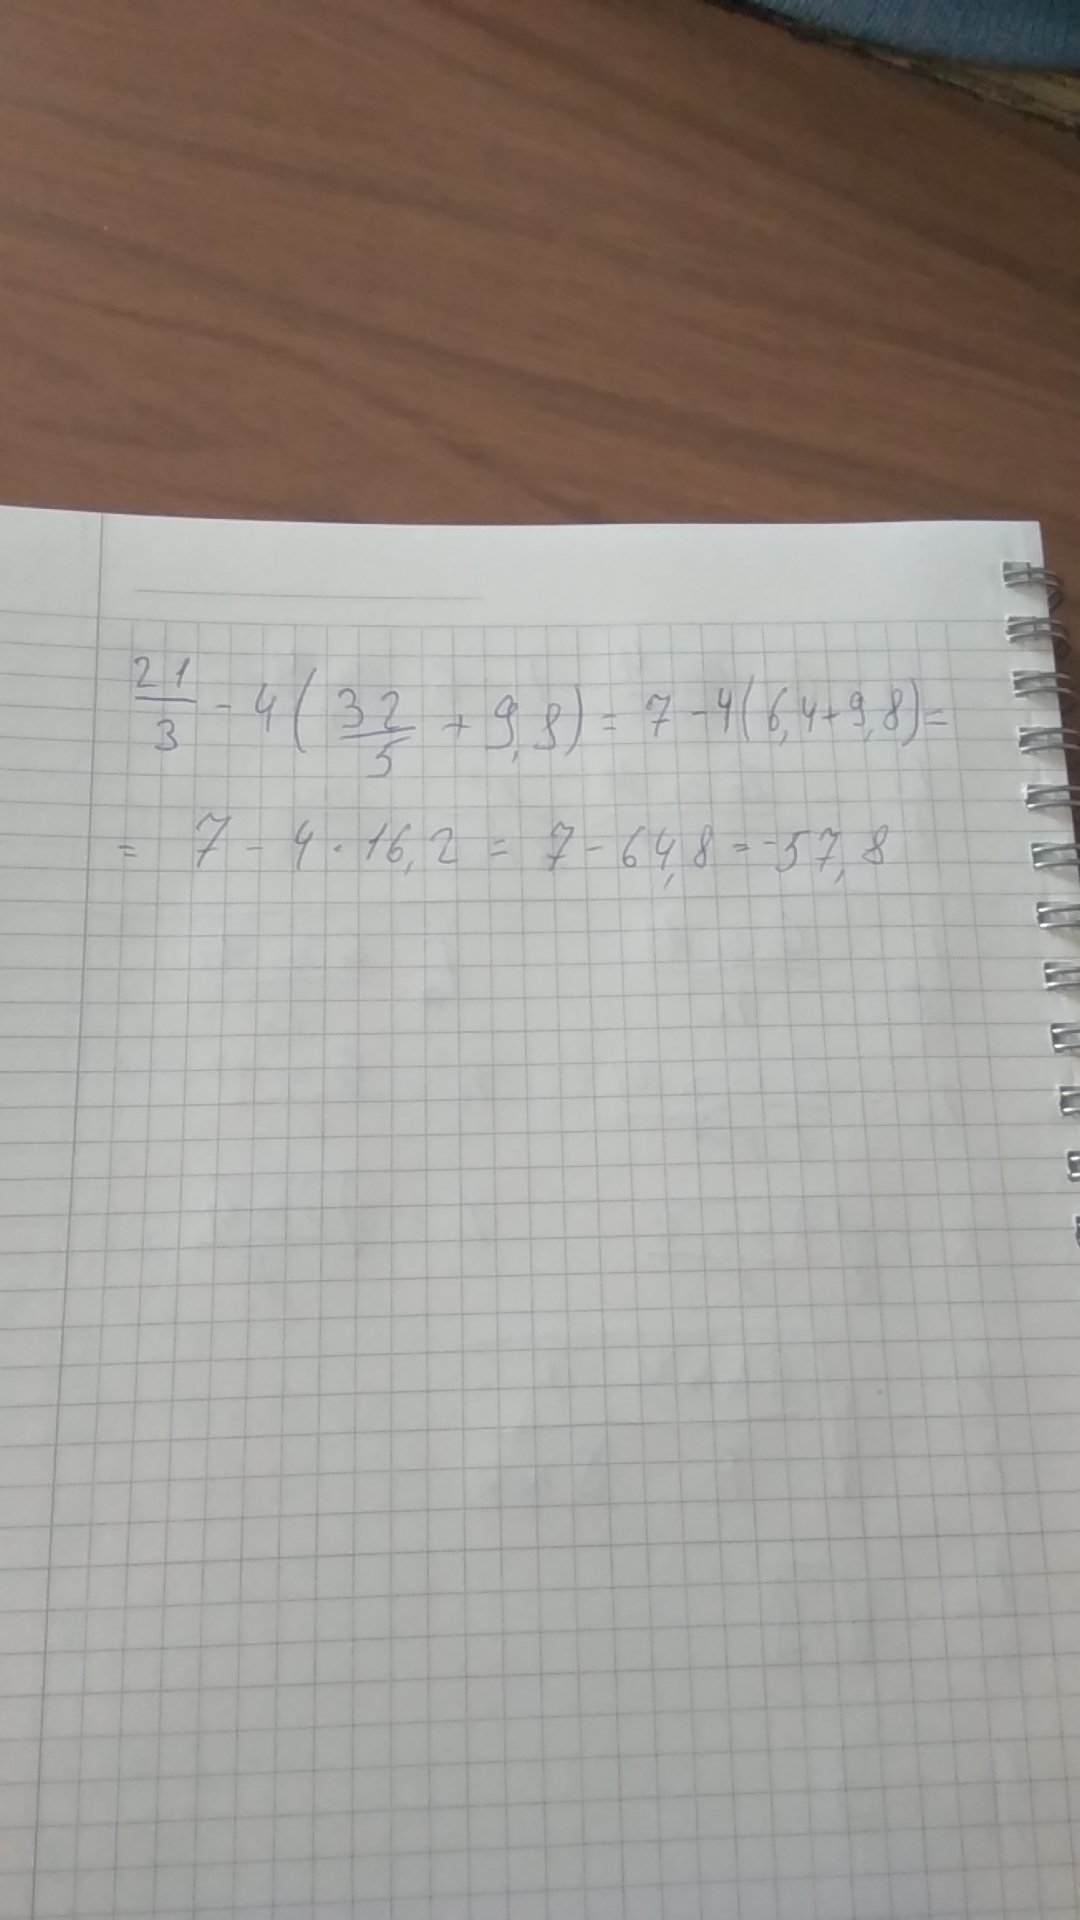 21/3 - 4(32/5 + 9,8) = 7 - 4(6,4+9,8)=
= 7 - 4 · 16,2 = 7 - 64,8 = -57,8